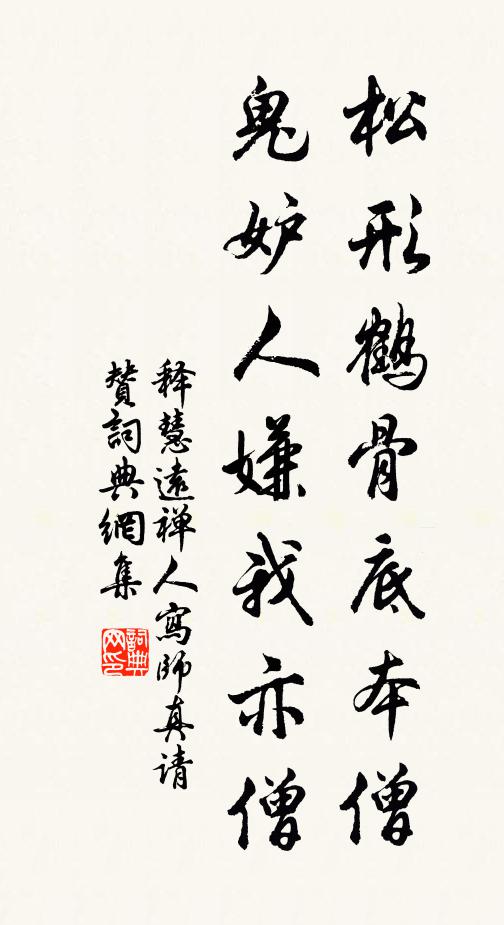 松形鶴骨底本僧
鬼妒人嫌我亦僧
释慧遠禅人寫師真请
赞詞典網集
詞典网印